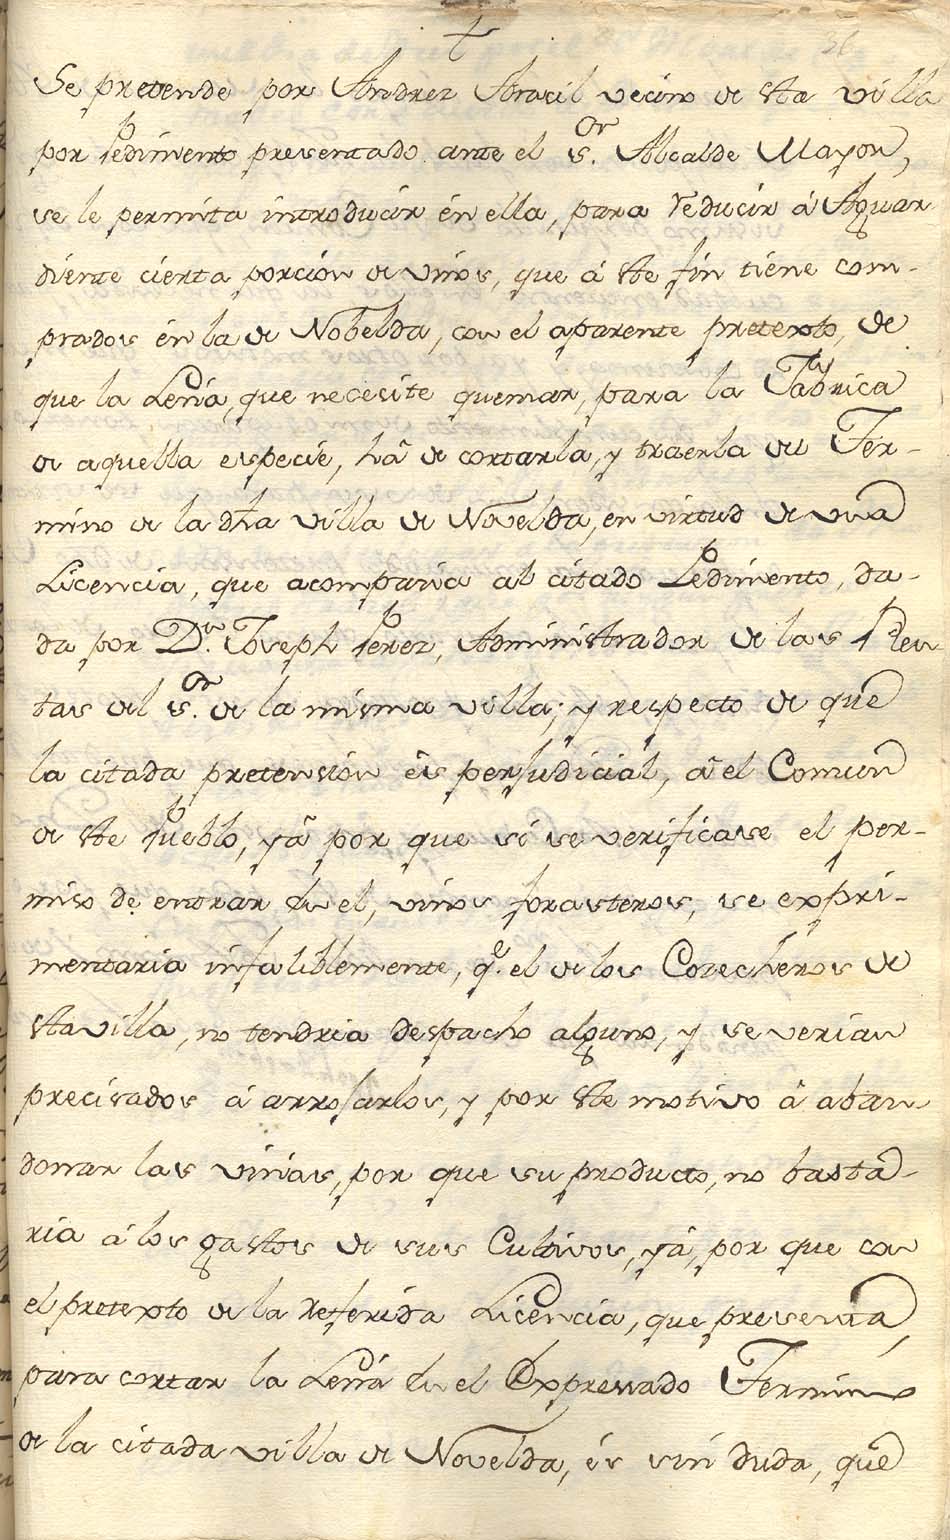 36
Se pretende por Andrez Abracil vecino de sta villa
por Pedimento presentado ante el S.or Alcalde Mayor,
se le permita introducir en ella, para reducir á Aguar
diente cierta porcion de vinos, que á ste fin tiene com-
prados en la de Nobelda, con el aparente pretexto, de
que la Leña, que necesite quemar, para la Fabrica
de aquella especie, hâ de cortarla, y traerla del Ter-
mino de la dha villa de Novelda, en virtud de una
Licencia, que acompaña al citado Pedimento, da-
da por D.n Joseph Perez, Administrador de las Ren-
tas del S.or de la misma villa; y respecto de que
la citada pretension és perjudicial, â el Comun
de ste Pueblo, yâ por que si se verificase el per-
miso de entrar en el, vinos forasteros, se expri-
mentaria infaliblemente, q.e el de los Cozecheros de
sta villa, no tendria despacho alguno, y se verian
precisados á arrojarlos, y por ste motivo â aban-
donar las viñas, por que su producto, no basta-
ria á los gastos de sus Cultivos, yá, por que con
el pretexto de la referida Licencia, que presenta
para cortar la Leña en el Expressado Termino
de la citada villa de Novelda, és sin duda, que